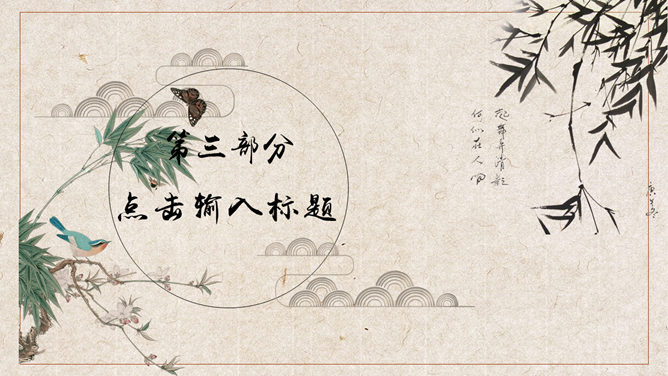 第三部分
点击输入标题
起舞弄清影
何似在人间